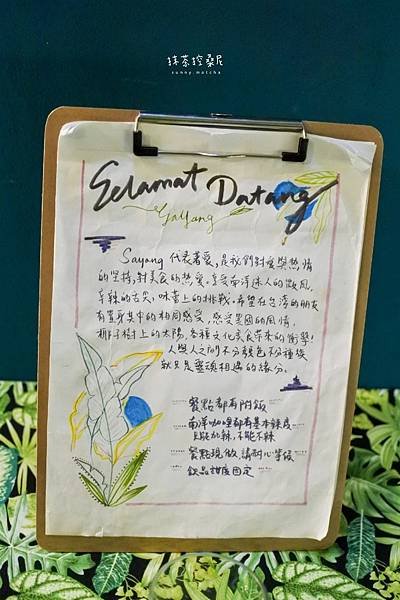 抹茶控桑尼
sunny.matcha
Selamat Datang
Sayang
Sayang 代表著愛,是我們對愛與熱情
的堅持,對美食的熱愛。享受南洋迷人的微風,
辛辣的舌尖,味蕾上的挑戰。希望在台灣的朋友
有置身其中的相同感受,感受異國的風情。
椰子樹上的太陽,各種文化美食帶來的衝擊!
人與人之間不分顏色不分種族
就只是靈魂相遇的緣分。
餐點都有附飯
南洋咖哩都有基本辣度
只能加辣,不能不辣
餐點現做,請耐心等候
飲品甜度固定